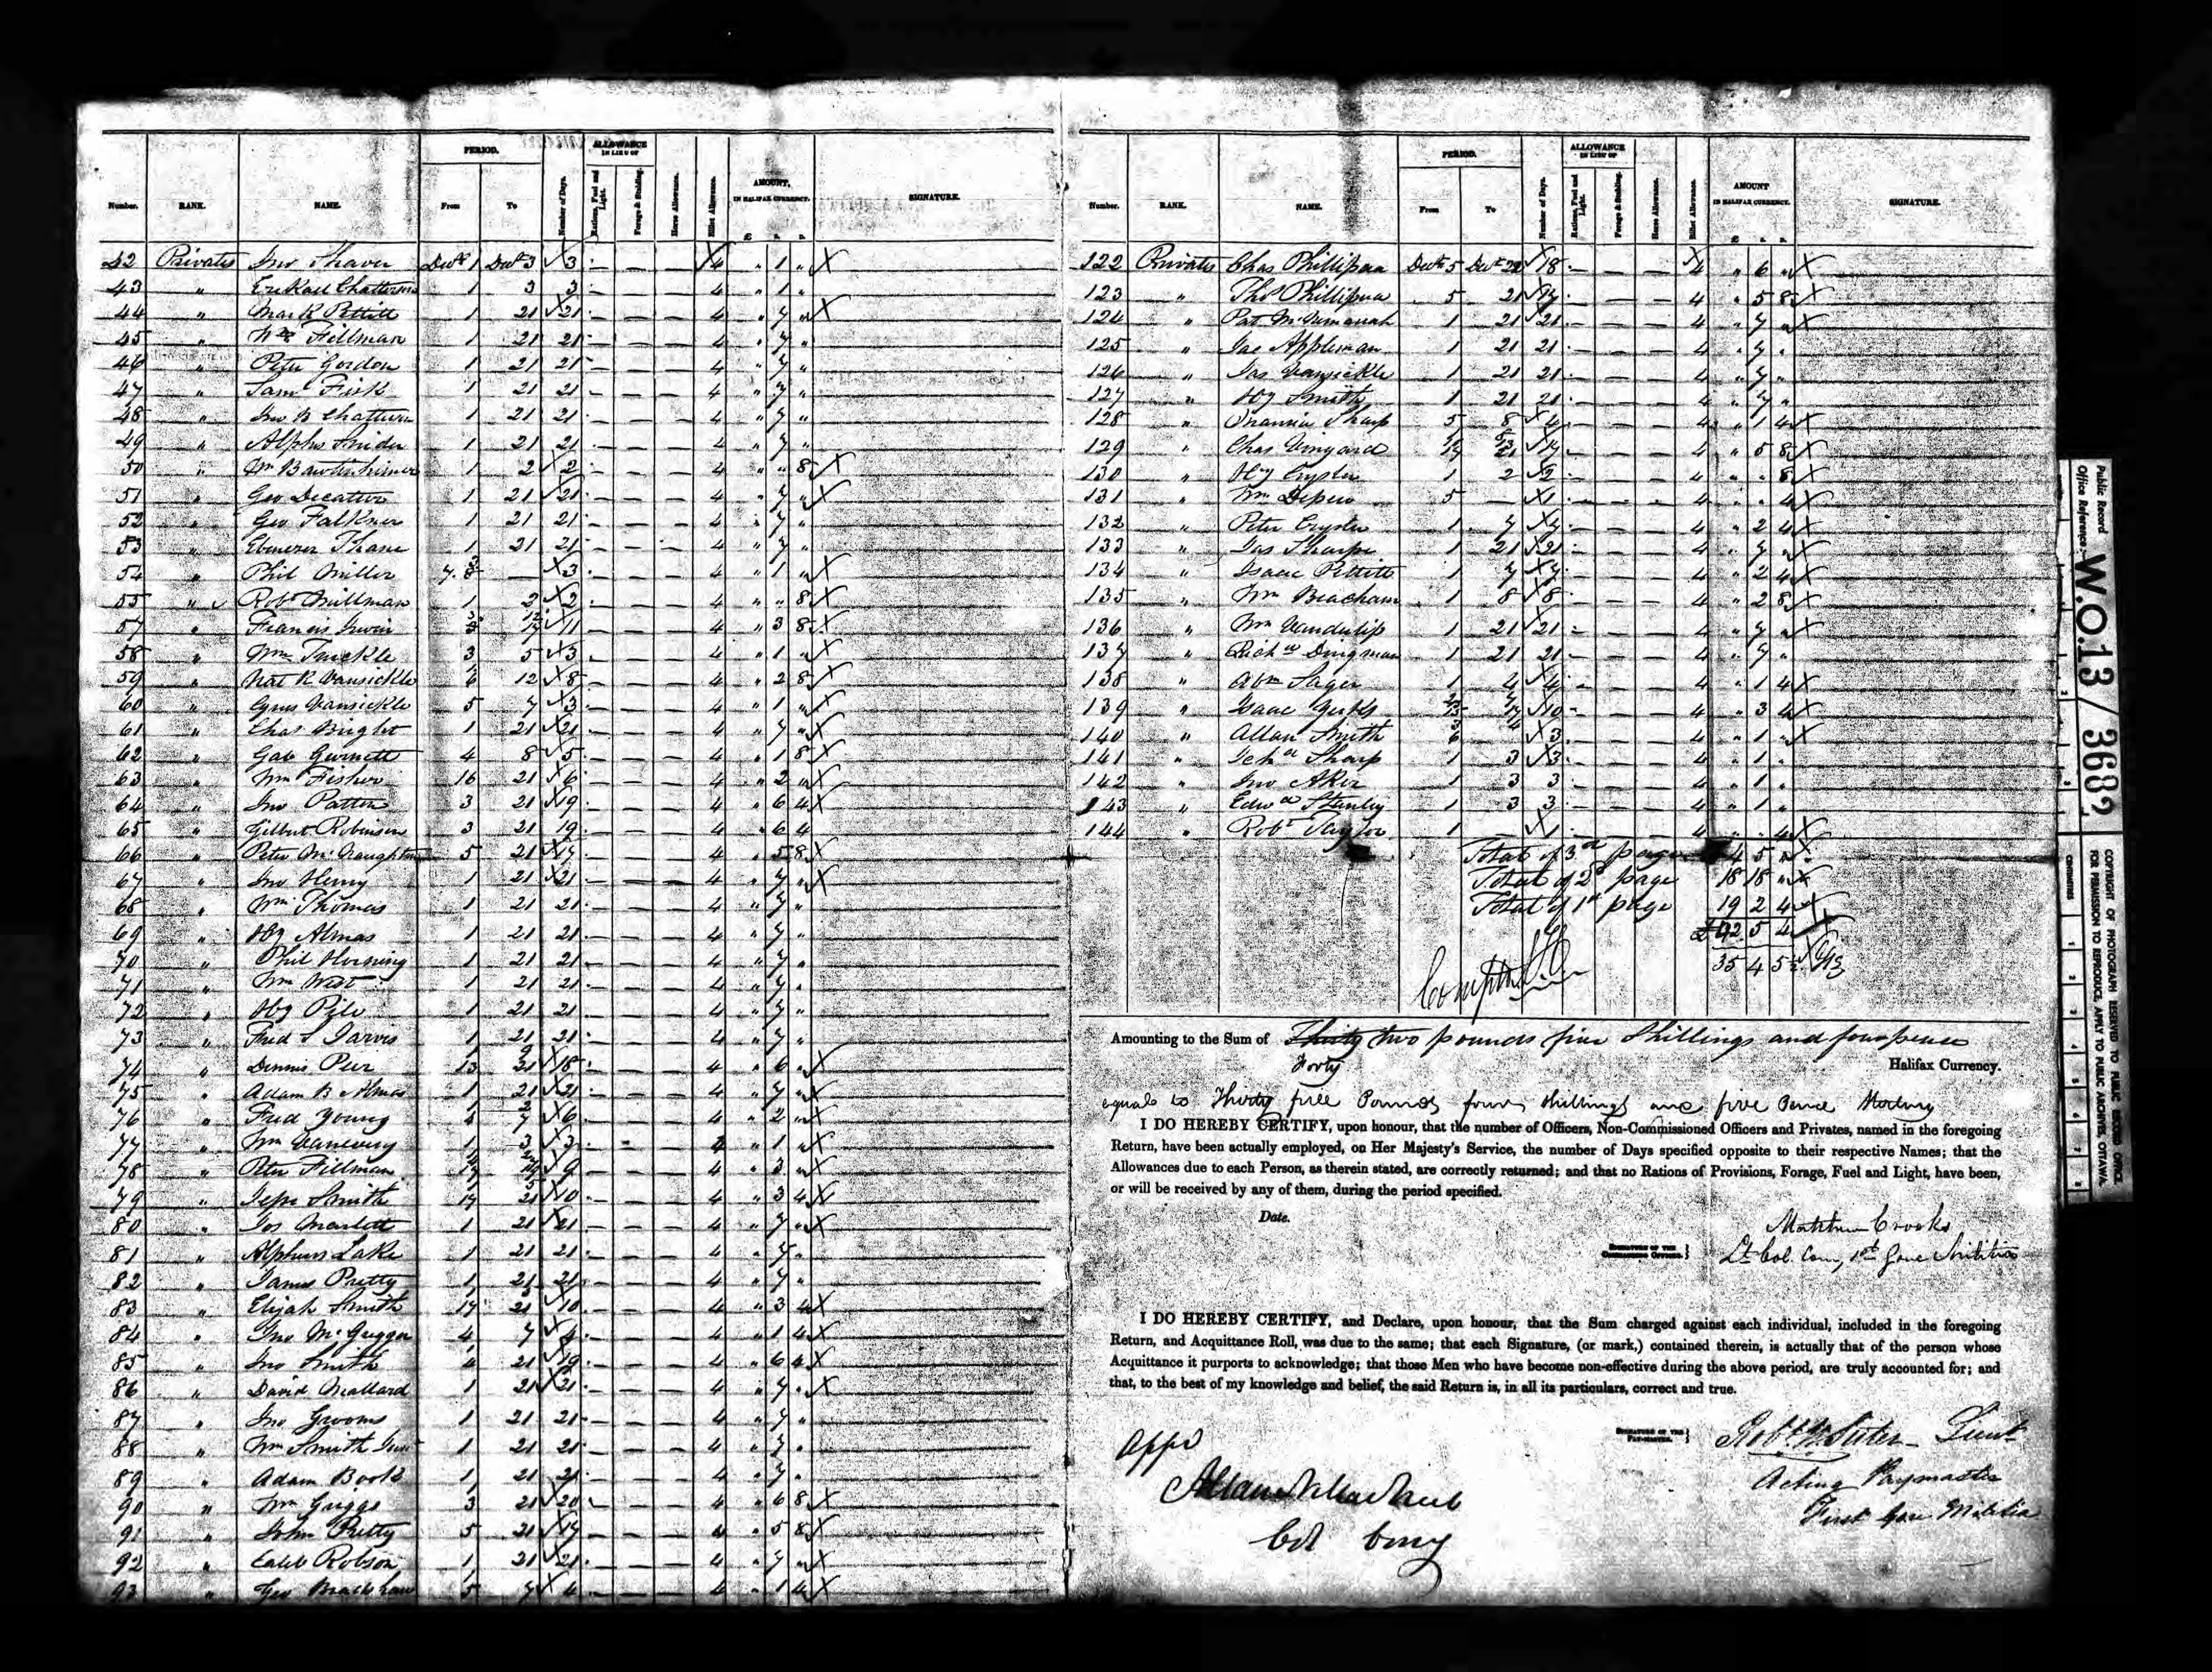 PERIOD.
ALLOWANCE IN LIEU OF
AMOUNT, IN HALIFAX CURRENCY.
Number. RANK. NAME. From To Number of Days. Rations, Fuel and Light. Forage & Stabling. Horse Allowance. Billet Allowance. £ s. D. SIGNATURE.
42 Privates Jno Shaver Decr 1 Decr 3 3 - - - 4 " 1 " X
43 " Chatterson 1 3 3 - - - 4 " 1 "
44 " Mark Pettitt 1 21 21 - - - 4 " 7 " X
45 " Wm Fillman 1 21 21 - - - 4 " 7 "
46 " Peter Gordon 1 21 21 - - - 4 " 7 "
47 " Saml Fisk 1 21 21 - - - 4 " 7 "
48 " Jno B Chatterson 1 21 21 - - - 4 " 7 "
49 " Alphs Snider 1 21 21 - - - 4 " 7 "
50 " Wm Bawtinhimer 1 2 2 - - - 4 " " 8 X
51 " Geo Decatur 1 21 21 - - - 4 " 7 " X
52 " Geo Falkner 1 21 21 - - - 4 " 7 "
53 " Ebenezer 1 21 21 - - - 4 " 7 "
54 " Phil Miller 3 - - - 4 " 1 " X
55 " Robt Millman 1 2 2 - - - 4 " " 8 X
57 " Francis Irwin 11 - - - 4 " 3 8 X
58 " Wm 3 5 3 - - - 4 " 1 " X
59 " Nat R Vansickle 12 8 - - - 4 " 2 8 X
60 " Cyrus Vansickle 5 7 3 - - - 4 " 1 " X
61 " Chas Bright 1 21 21 - - - 4 " 7 " X
62 " Gab Gurnett 4 8 5 - - - 4 " 1 8 X
63 " Wm Fisher 16 21 6 - - - 4 " 2 " X
64 " Jno Patten 3 21 19 - - - 4 " 6 4 X
65 " Gilbert Robinson 3 21 19 - - - 4 " 6 4
66 " Peter McNaughton 5 21 17 - - - 4 " 5 8 X
67 " Jno Henry 1 21 21 - - - 4 " 7 " X
68 " Wm Thomas 1 21 21 - - - 4 " 7 "
69 " Hy Almas 1 21 21 - - - 4 " 7 "
70 " Phil Horning 1 21 21 - - - 4 " 7 "
71 " Wm West 1 21 21 - - - 4 " 7 "
72 " Hy Pile 1 21 21 - - - 4 " 7 "
73 " Fred S Jarvis 1 21 21 - - - 4 " 7 "
74 " Dennis Peer 18 - - - 4 " 6 " X
75 " Adam B Almas 1 21 21 - - - 4 " 7 " X
76 " Fred Young 6 - - - 4 " 2 " X
77 " Wm 1 3 3 - - - " 1 " X
78 " Peter Fillman 9 - - - 4 " 3 " X
79 " Smith 10 - - - 4 " 3 4 X
80 " Jos Marlett 1 21 21 - - - 4 " 7 " X
81 " Alpheus Lake 1 21 21 - - - 4 " 7 "
82 " James Pretty 1 21 21 - - - 4 " 7 "
83 " Elijah Smith 10 - - - 4 " 3 4 X
84 " Jno McGriggor 4 7 4 - - - 4 " 1 4 X
85 " Jno Smith 21 19 - - - 4 " 6 4 X
86 " David Mallard 1 21 21 - - - 4 " 7 " X
87 " Jno Grooms 1 21 21 - - - 4 " 7 "
88 " Wm Smith Junr 1 21 21 - - - 4 " 7 "
89 " Adam Book 1 21 21 - - - 4 " 7 "
90 " Wm Griggs 3 21 20 - - - 4 " 6 8 X
91 " John Pretty 5 21 17 - - - 4 " 5 8 X
92 " Caleb Robson 1 21 21 - - - 4 " 7 " X
93 " Geo Bradshaw 5 7 4 - - - 4 " 1 4 X
PERIOD.
ALLOWANCE IN LIEU OF
AMOUNT IN HALIFAX CURRENCY.
Number. RANK. NAME. From To Number of Days. Rations, Fuel and Light. Forage & Stabling. Horse Allowance. Billet Allowance. £ s. D. SIGNATURE.
122 Privates Chas Decr 5 Decr 22 18 - - - 4 " 6 " X
123 " Thos 5 21 17 - - - 4 " 5 8 X
124 " Pat 1 21 21 - - - 4 " 7 " X
125 " Jac Appleman 1 21 21 - - - 4 " 7 "
126 " Jas Vansickle 1 21 21 - - - 4 " 7 "
127 " Hy Smith 1 21 21 - - - 4 " 7 "
128 " Sharp 5 8 4 - - - 4 " 1 4 X
129 " Chas Vinyard 17 - - - 4 " 5 8 X
130 " Hy Crysler 1 2 2 - - - 4 " " 8 X
131 " Wm Depew 5 1 4 " " 4 X
132 " Peter Crysler 1 7 7 - - - 4 " 2 4 X
133 " Jas Sharpe 1 21 21 - - - 4 " 7 " X
134 " Isaac Pettitt 1 7 7 - - - 4 " 2 4 X
135 " Wm Beacham 1 8 8 - - - 4 " 2 8 X
136 " Wm Vanderlip 1 21 21 - - - 4 " 7 " X
137 " Richd Dingman 1 21 21 - - - 4 " 7 "
138 " Abm Sager 1 4 4 - - - 4 " 1 4 X
139 " Isaac 10 - - - 4 " 3 4 X
140 " Allan Smith 3 - - - 4 " 1 " X
141 " Sharp 1 3 3 - - - 4 " 1 "
142 " Jno Aker 1 3 3 - - - 4 " 1 "
143 " Edwd Stanley 1 3 3 - - - 4 " 1 "
144 " Robt Taylor 1 1 - - - 4 " " 4 X
Total of 3d page 4 5 " X
Total of 2d page 18 18 " X
Total of 1st page 19 2 4 X
£ 42 5 4
35 4 5
Amounting to the Sum of Thirty two pounds five Shillings and four pence
Forty
Halifax Currency.
equals to Thirty five Pounds four Shillings and five Pence Sterling
I DO HEREBY CERTIFY, upon honour, that the number of Officers, Non-Commissioned Officers and Privates, named in the foregoing
Return, have been actually employed, on Her Majesty's Service, the number of Days specified opposite to their respective Names; that the
Allowances due to each Person, as therein stated, are correctly returned; and that no Rations of Provisions, Forage, Fuel and Light, have been,
or will be received by any of them, during the period specified.
Date.
SIGNATURE OF THE COMMANDING OFFICER. }
Matthew Crooks
Lt Col. Com, 1st Gore Militia
I DO HEREBY CERTIFY, and Declare, upon honour, that the Sum charged against each individual, included in the foregoing
Return, and Acquittance Roll, was due to the same; that each Signature, (or mark,) contained therein, is actually that of the person whose
Acquittance it purports to acknowledge; that those Men who have become non-effective during the above period, are truly accounted for; and
that, to the best of my knowledge and belief, the said Return is, in all its particulars, correct and true.
SIGNATURE OF THE PAY-MASTER. }
Robt W Suter Lieut
Acting Paymaster
First Gore Militia
Appd
Allan N MacNab
Col Comg
Public Record Office Reference:- W.O.13/3682
COPYRIGHT OF PHOTOGRAPH RESERVED TO PUBLIC RECORD OFFICE.
FOR PERMISSION TO REPRODUCE, APPLY TO PUBLIC ARCHIVES, OTTAWA